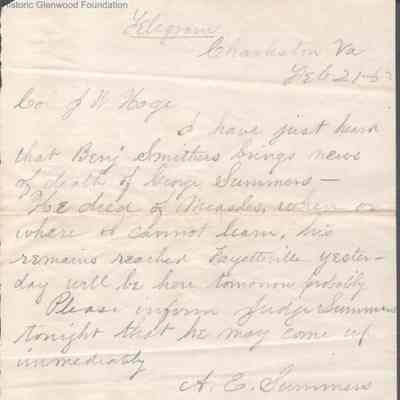 Historic Glenwood Foundation
Telegram
Charleston Va
Feb 21-6
Co J W Hoge
I have just learn
that Benj Smithers brings news
of death of George Summers—
He died of Measles, when or
where I cannot learn, his
remains reached Fayettville yester-
day will be here tomorrow probably
Please inform Judge Summers
tonight that he may come up
immediately
A. E. Summers